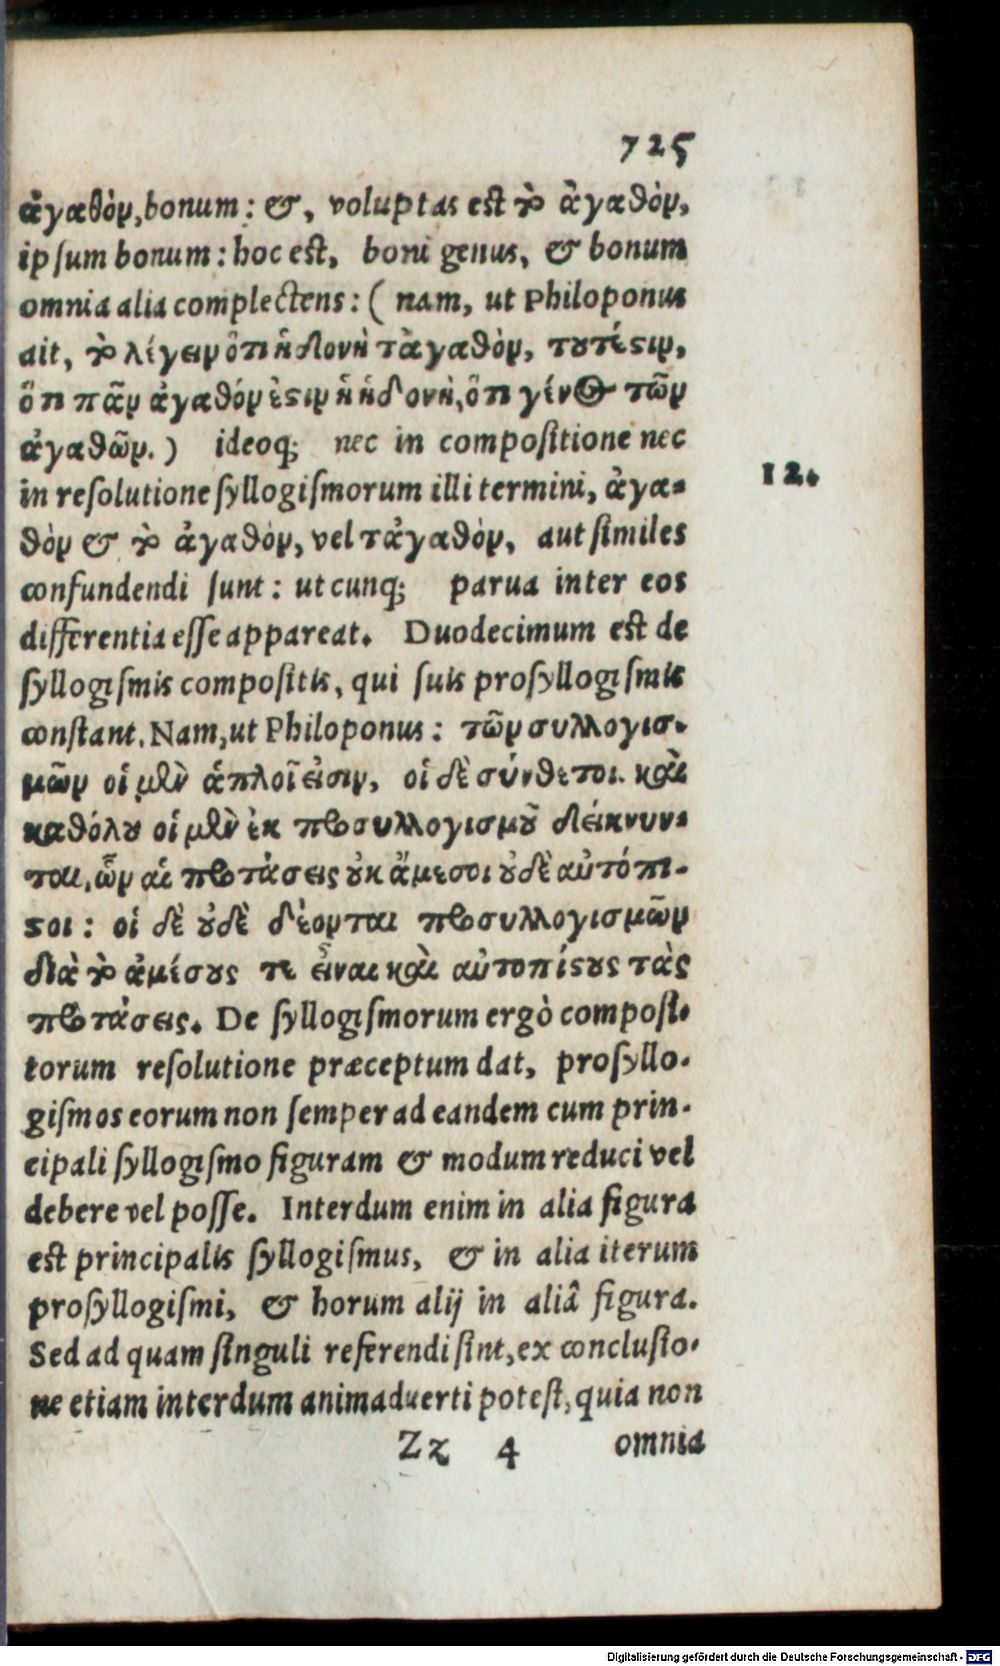 725
ἀγαθὸν, bonum: &, voluptas est τὸ ἀγαθὸν,
ipsum bonum: hoc est, boni genus, & bonum
omnia alia complectens: (nam, ut Philoponus
ait, τὸ λέγειν ὅτι ἡ ἡδονὴ τἀγαθὸν, τουτέστιν,
ὅτι πᾶν ἀγαθόν ἐστιν ἡ ἡδονὴ, ὅτι γένος τῶν
ἀγαθῶν.) ideoq; nec in compositione nec
in resolutione syllogismorum illi termini, ἀγα-
θὸν & τὸ ἀγαθόν, vel τἀγαθὸν, aut similes
12.
confundendi sunt: ut cunq; parua inter eos
differentia esse appareat. Duodecimum est de
syllogismis compositis, qui suis prosyllogismis
constant. Nam, ut Philoponus: τῶν συλλογισ-
μῶν οἱ μὲν ἁπλοῖ εἰσιν, οἱ δὲ σύνθετοι. καὶ
καθόλου οἱ μὲν ἐκ προσυλλογισμοῦ δείκνυν-
ται, ὧν αἱ προτάσεις οὐκ ἄμεσοι οὐδὲ αὐτόπι-
στοι: οἱ δὲ οὐδὲ δέονται προσυλλογισμῶν
διὰ τὸ ἀμέσους τε εἶναι καὶ αὐτοπίστους τὰς
προτάσεις. De syllogismorum ergò composi-
torum resolutione præceptum dat, prosyllo-
gismos eorum non semper ad eandem cum prin-
cipali syllogismo figuram & modum reduci vel
debere vel posse. Interdum enim in alia figura
est principalis syllogismus, & in alia iterum
prosyllogismi, & horum alij in aliâ figura.
Sed ad quam singuli referendi sint, ex conclusio-
ne etiam interdum animaduerti potest, quia non
Zz 4 omnia
Digitalisierung gefördert durch die Deutsche Forschungsgemeinschaft - DFG